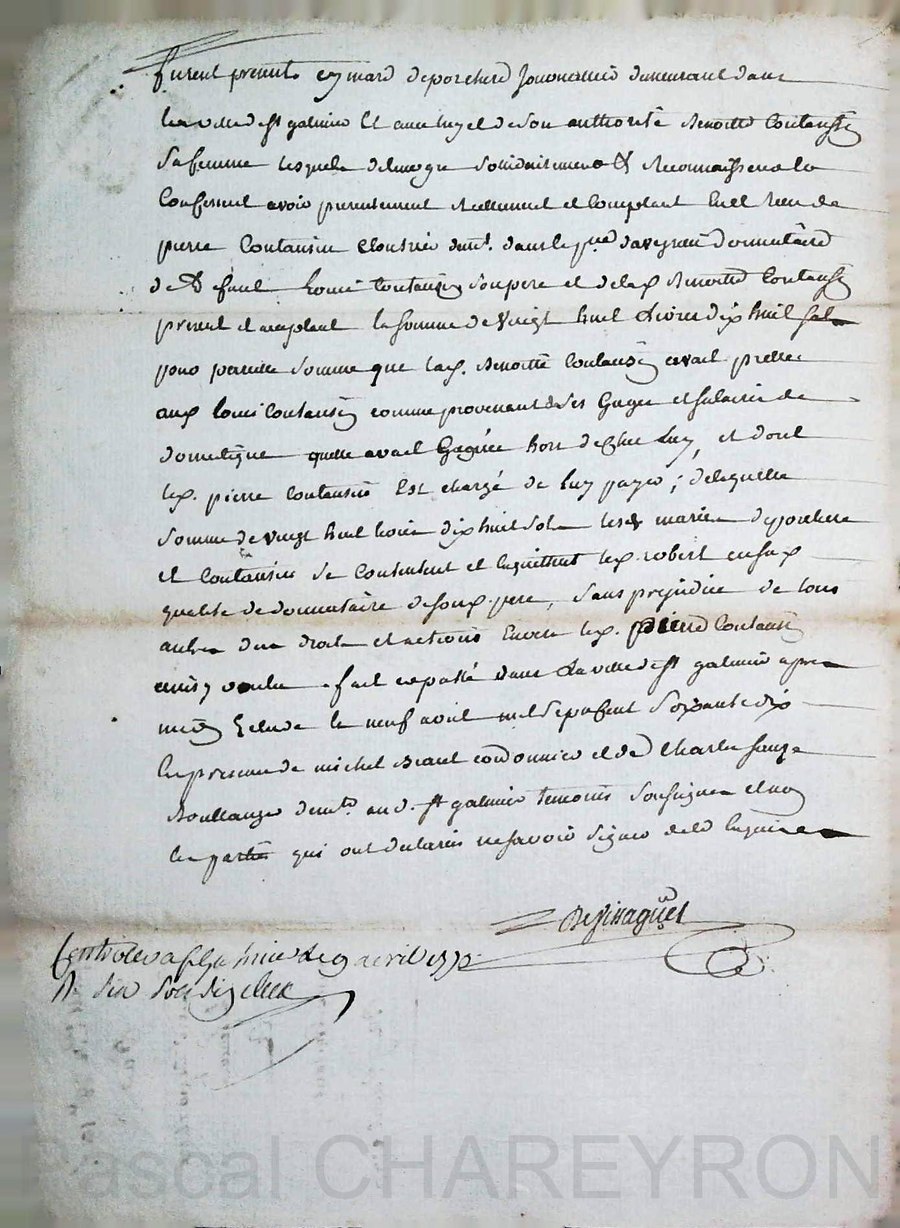 furent presents eymard deporcherd journallier demeurant dans
la ville de st galmier Et avec luy et de son authorité Benoitte Coutansin
sa femme lesquels de leur gre solidairement Reconnaissent et
Confessent avoir presentement Reellement et Comptant Eu et Receu de
pierre Coutansin Cloutrier demt. dans le pnd d'aveyrieu donnataire
de deffunt Louis Coutansin son pere et de lad. Benoitte Coutansin
present et acceptant la somme de vingt huit Livres dix huit sols
pour pareille somme que lad. Benoitte Coutansin avait prettee
aud. louis Coutansin comme provenant de ses Gages et salaires de
domestique quelle avait Gagnée hors de chez Luy, et dont
led. pierre Coutansin Est chargé de luy payer; de laquelle
somme de vingt huit livres dix huit sols lesd. mariés deporcherd
et Coutansin se Contentent et En quittent led. robert en sad.
qualité de donnataire de soud. pere, sans prejudice de tous
autres dus droits et actions Envers led. pierre Coutansin
ainsy voulu fait et passé dans La ville de st galmier apres
midy Etude le neuf avril mil sept cent soixante dix
En presence de michel Brant cordonnier et de Charles sauze
Boullanger demts. aud. st galmier temoins soussignes et non
les parties qui ont declarés ne savoir signer de ce Enquises
Contrôlé a st galmier Le 9 avril 177
R. six sols six den